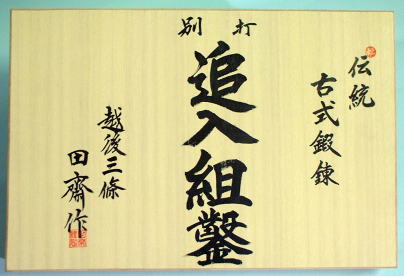 伝統
古式鍛錬
別打
追入組鑿
越後三條
田齋作